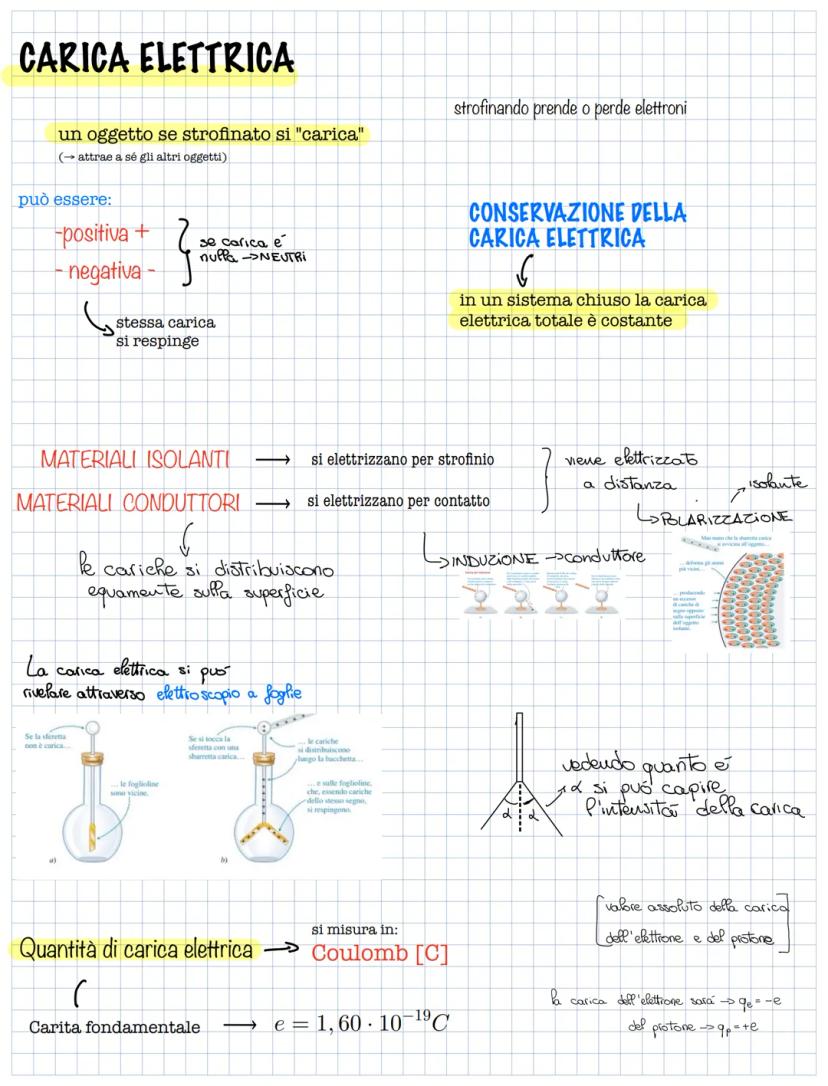 CARICA ELETTRICA
strofinando prende o perde elettroni
un oggetto se strofinato si "carica"
(→ attrae a sé gli altri oggetti)
può essere:
-positiva +
- negativa -
se carica è
nulla → NEUTRI
stessa carica
si respinge
CONSERVAZIONE DELLA
CARICA ELETTRICA
in un sistema chiuso la carica
elettrica totale è costante
MATERIALI ISOLANTI → si elettrizzano per strofinio
MATERIALI CONDUTTORI → si elettrizzano per contatto
viene elettrizzato
a distanza
isolante
POLARIZZAZIONE
INDUZIONE → conduttore
le cariche si distribuiscono
equamente sulla superficie
Man mano che la sbarretta carica
si avvicina all'oggetto...
... deforma gli atomi
più vicini...
... producendo
un eccesso
di cariche di
segno opposto
sulla superficie
dell'oggetto
isolante.
La carica elettrica si può
rivelare attraverso elettroscopio a foglie
Se la sferetta
non è carica...
... le foglioline
sono vicine.
a)
Se si tocca la
sferetta con una
sbarretta carica...
... le cariche
si distribuiscono
lungo la bacchetta...
... e sulle foglioline,
che, essendo cariche
dello stesso segno,
si respingono.
b)
α α
vedendo quanto è
α si può capire
l'intensità della carica
Quantità di carica elettrica →
si misura in:
Coulomb [C]
valore assoluto della carica
dell'elettrone e del protone
Carita fondamentale → e = 1,60 · 10⁻¹⁹C
la carica dell'elettrone sarà → qe = -e
del protone → qp = +e